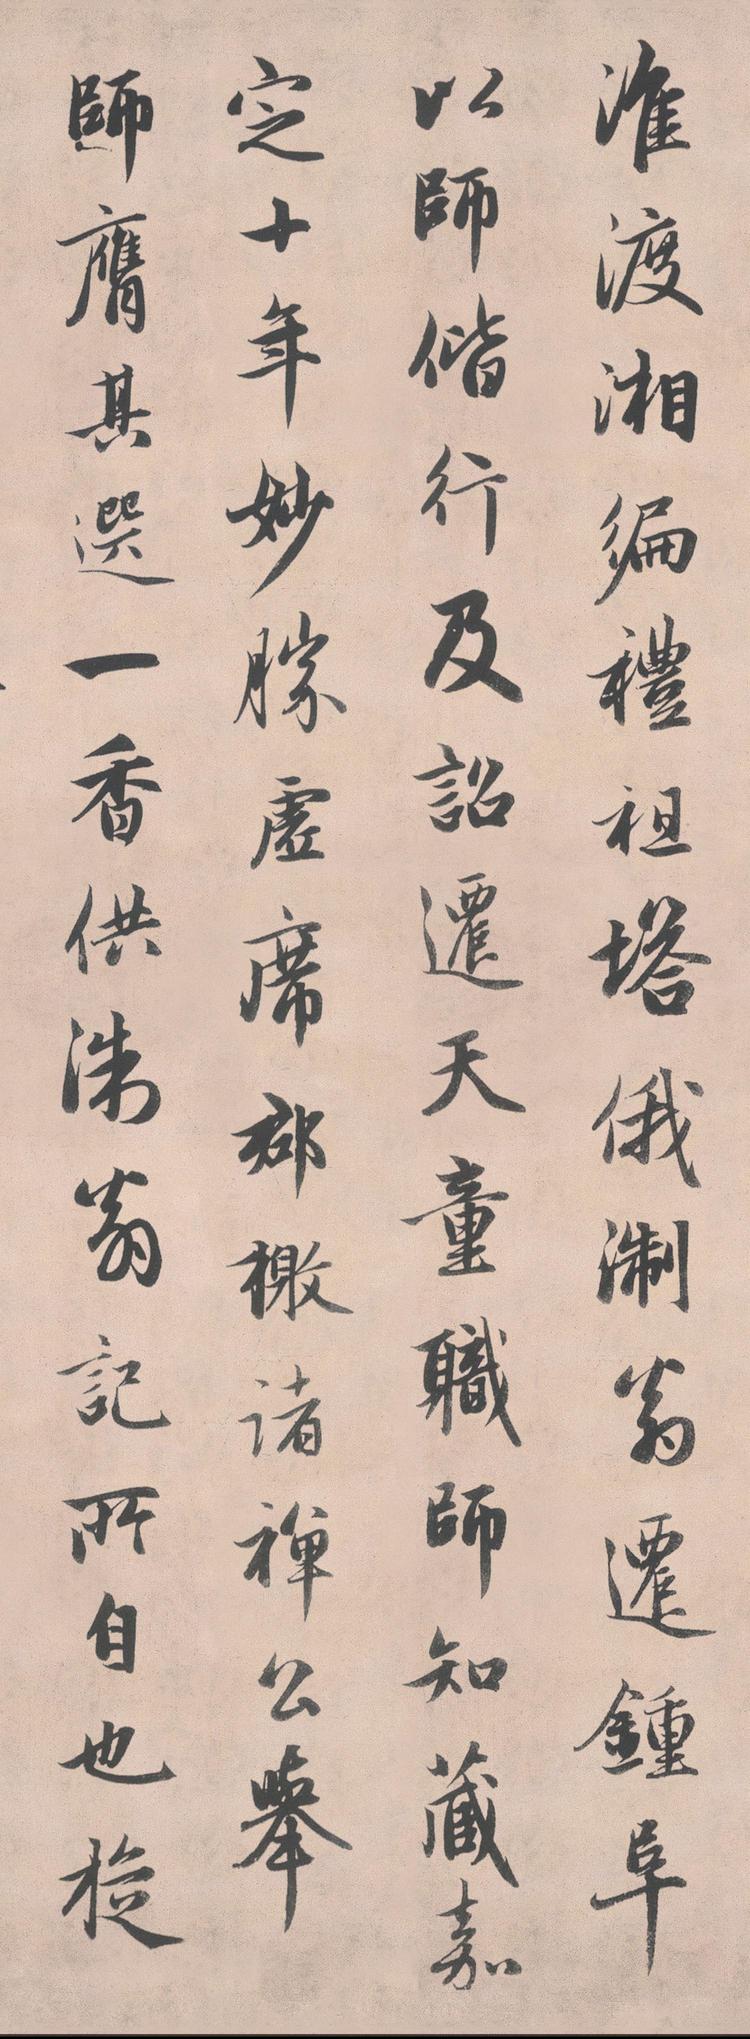 淮渡湘徧禮祖塔俄淛翁遷鍾阜
以師偕行及詔遷天童職師知藏嘉
定十年妙勝虛席郡檄諸禅公舉
師膺其選一香供淛翁記所自也旋